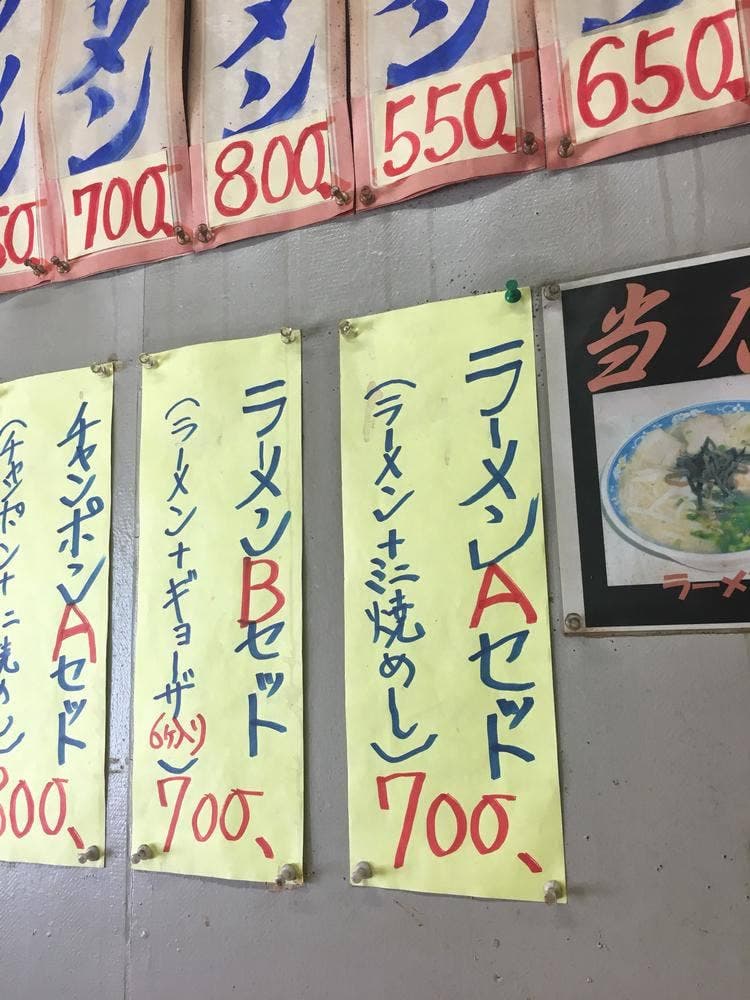 メン
650
ン
550
メン
800
メン
700
50
当
ラーメ
ラーメンAセット
(ラーメン+ミニ焼めし)
700、
ラーメンBセット
(ラーメン+ギョーザ
6ヶ入り)
700、
チャンポンAセット
(チャンポン+ミニ焼めし)
800、